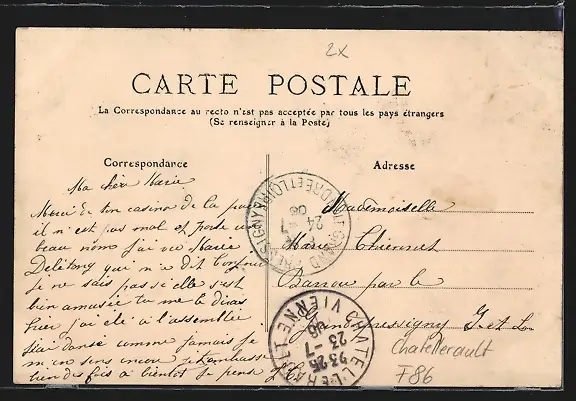 2x
CARTE POSTALE
La Correspondance au recto n'est pas acceptée par tous les pays étrangers
(Se renseigner à la Poste)
Correspondance
Adresse
Ma chère Marie
Merci de ton casino de la
il n'est pas mal et porte un
beau nom j'ai vu Marie
Delétang qui m'a dit bonjour
je ne sais pas si elle s'est
bien amusée tu me le diras
hier j'ai été à l'assemblée
j'ai dansé comme jamais je
m'en sens encore je t'embrasse
bien des fois à bientôt je pense
Mademoiselle
Marie Thiennet
Barrou par le
Grand Pressigny I. et L.
LE GRAND PRESSIGNY INDRE ET LOIRE
24 -7
06
CHATELLERAULT VIENNE
23 -7
06
Chatellerault
F86